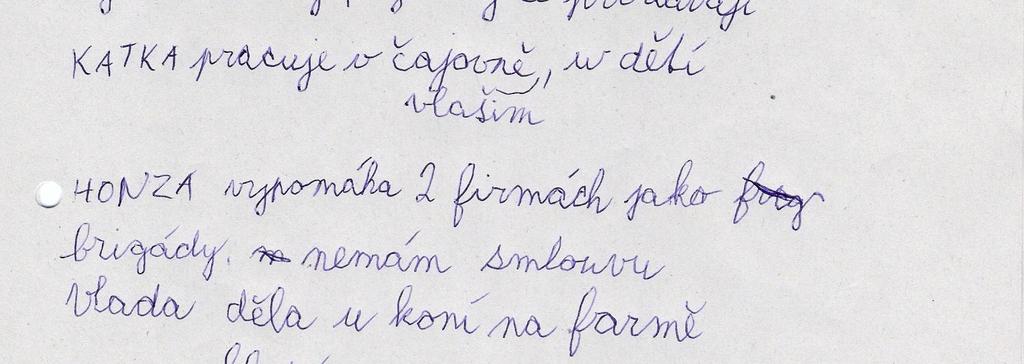 KATKA pracuje v čajovně, u dětí
vlašim
HONZA vypomáha 2 firmách jako
brigády. nemám smlouvu
Vlada děla u koní na farmě